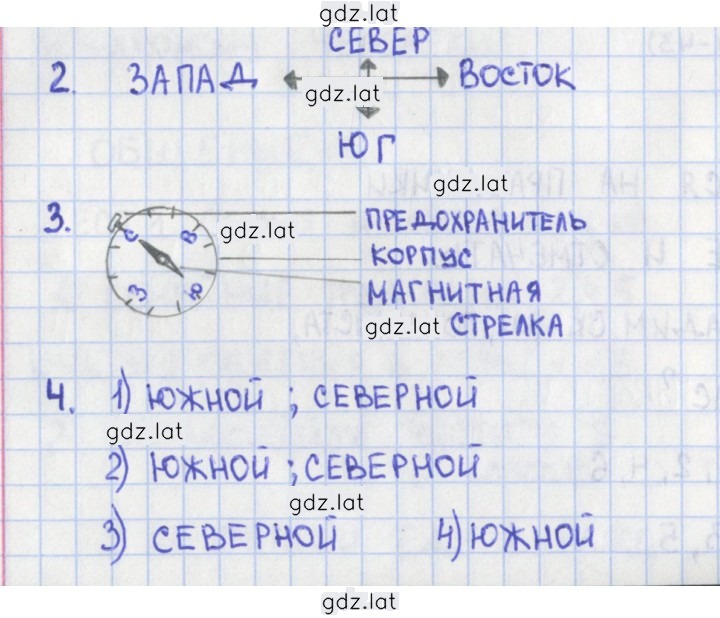 gdz.lat
СЕВЕР
2. ЗАПАД ВОСТОК
gdz.lat
ЮГ
gdz.lat
3. ПРЕДОХРАНИТЕЛЬ
С В gdz.lat
КОРПУС
З Ю МАГНИТНАЯ
gdz.lat СТРЕЛКА
4. 1) ЮЖНОЙ ; СЕВЕРНОЙ
gdz.lat
2) ЮЖНОЙ ; СЕВЕРНОЙ
gdz.lat
3) СЕВЕРНОЙ 4) ЮЖНОЙ
gdz.lat